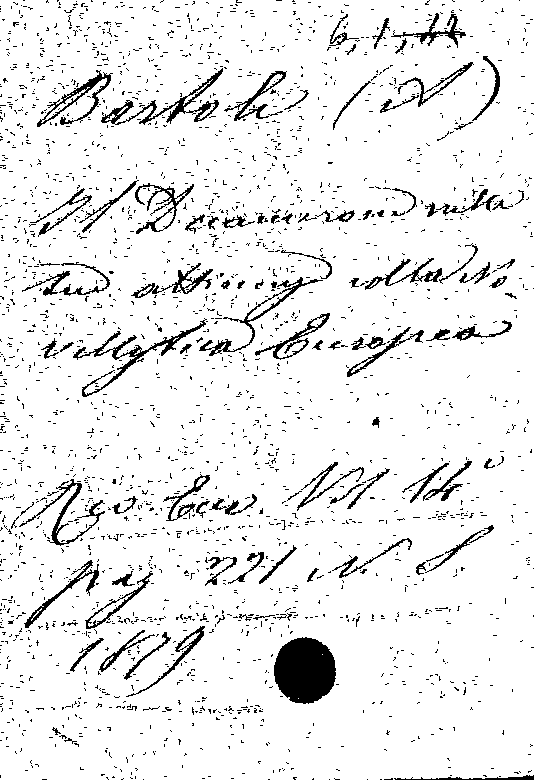 6, 1, 42
Bartoli (A)
Il Decamerone nelle
sue attinenze colla No
vellistica Europea
Riv. Eur. Vol. 14°
pag 221 N. S
1879